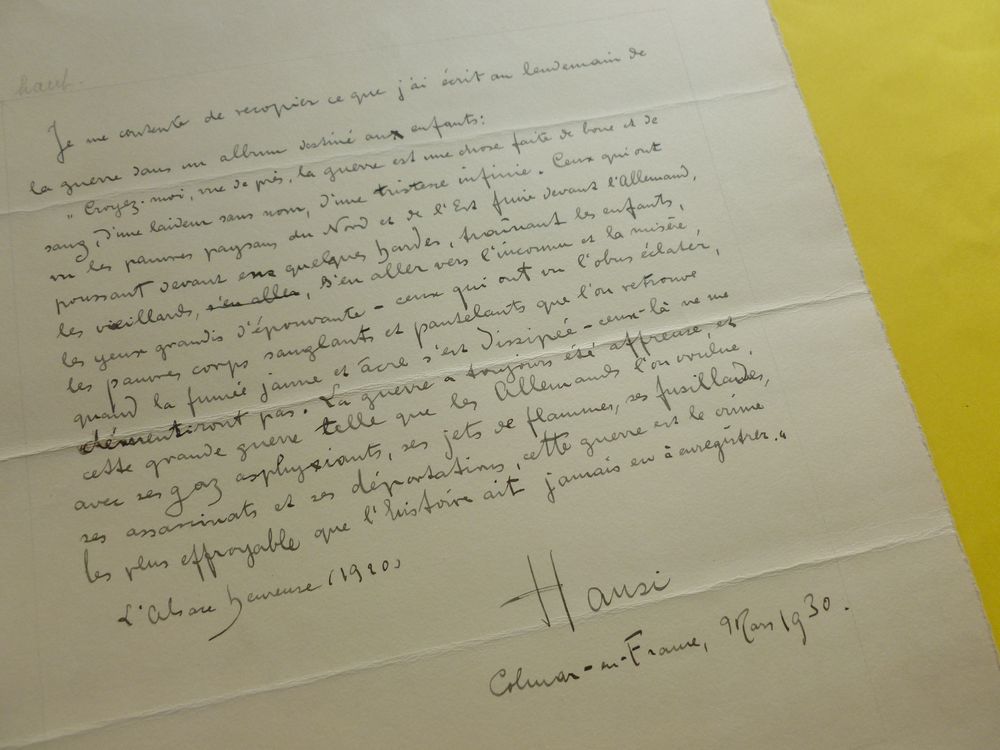 haut.
Je me contente de recopier ce que j'ai écrit au lendemain de
la guerre dans un album destiné aux enfants:
"Croyez-moi, vue de près, la guerre est une chose faite de boue et de
sang, d'une laideur sans nom, d'une tristesse infinie. Ceux qui ont
vu les pauvres paysans du Nord et de l'Est fuire devant l'Allemand,
poussant devant eux quelques hardes, traînant les enfants,
les vieillards, s'en aller, s'en aller vers l'inconnu et la misère,
les yeux grandis d'épouvante - ceux qui ont vu l'obus éclater,
les pauvres corps sanglants et pantelants que l'on retrouve
quand la fumée jaune et âcre s'est dissipée - ceux-là ne me
démentiront pas. La guerre a toujours été affreuse, et
cette grande guerre telle que les Allemands l'on voulue,
avec ses gaz asphyxiants, ses jets de flammes, ses fusillades,
ses assassinats et ses déportations, cette guerre est le crime
les plus effroyable que l'histoire ait jamais eu à enregistrer."
L'Alsace heureuse (1920)
Hansi
Colmar-en-France, 9 Mars 1930.